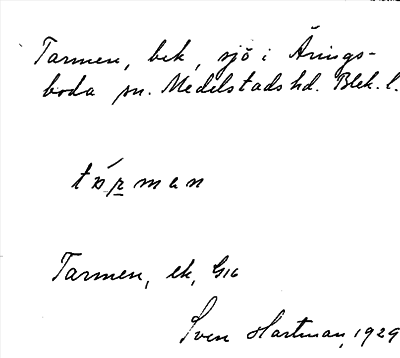 Tarmen, bek, sjö i Årings-
boda sn. Medelstads hd. Blek. l.
Tarmen, ek, G16
Sven Hartman, 1929